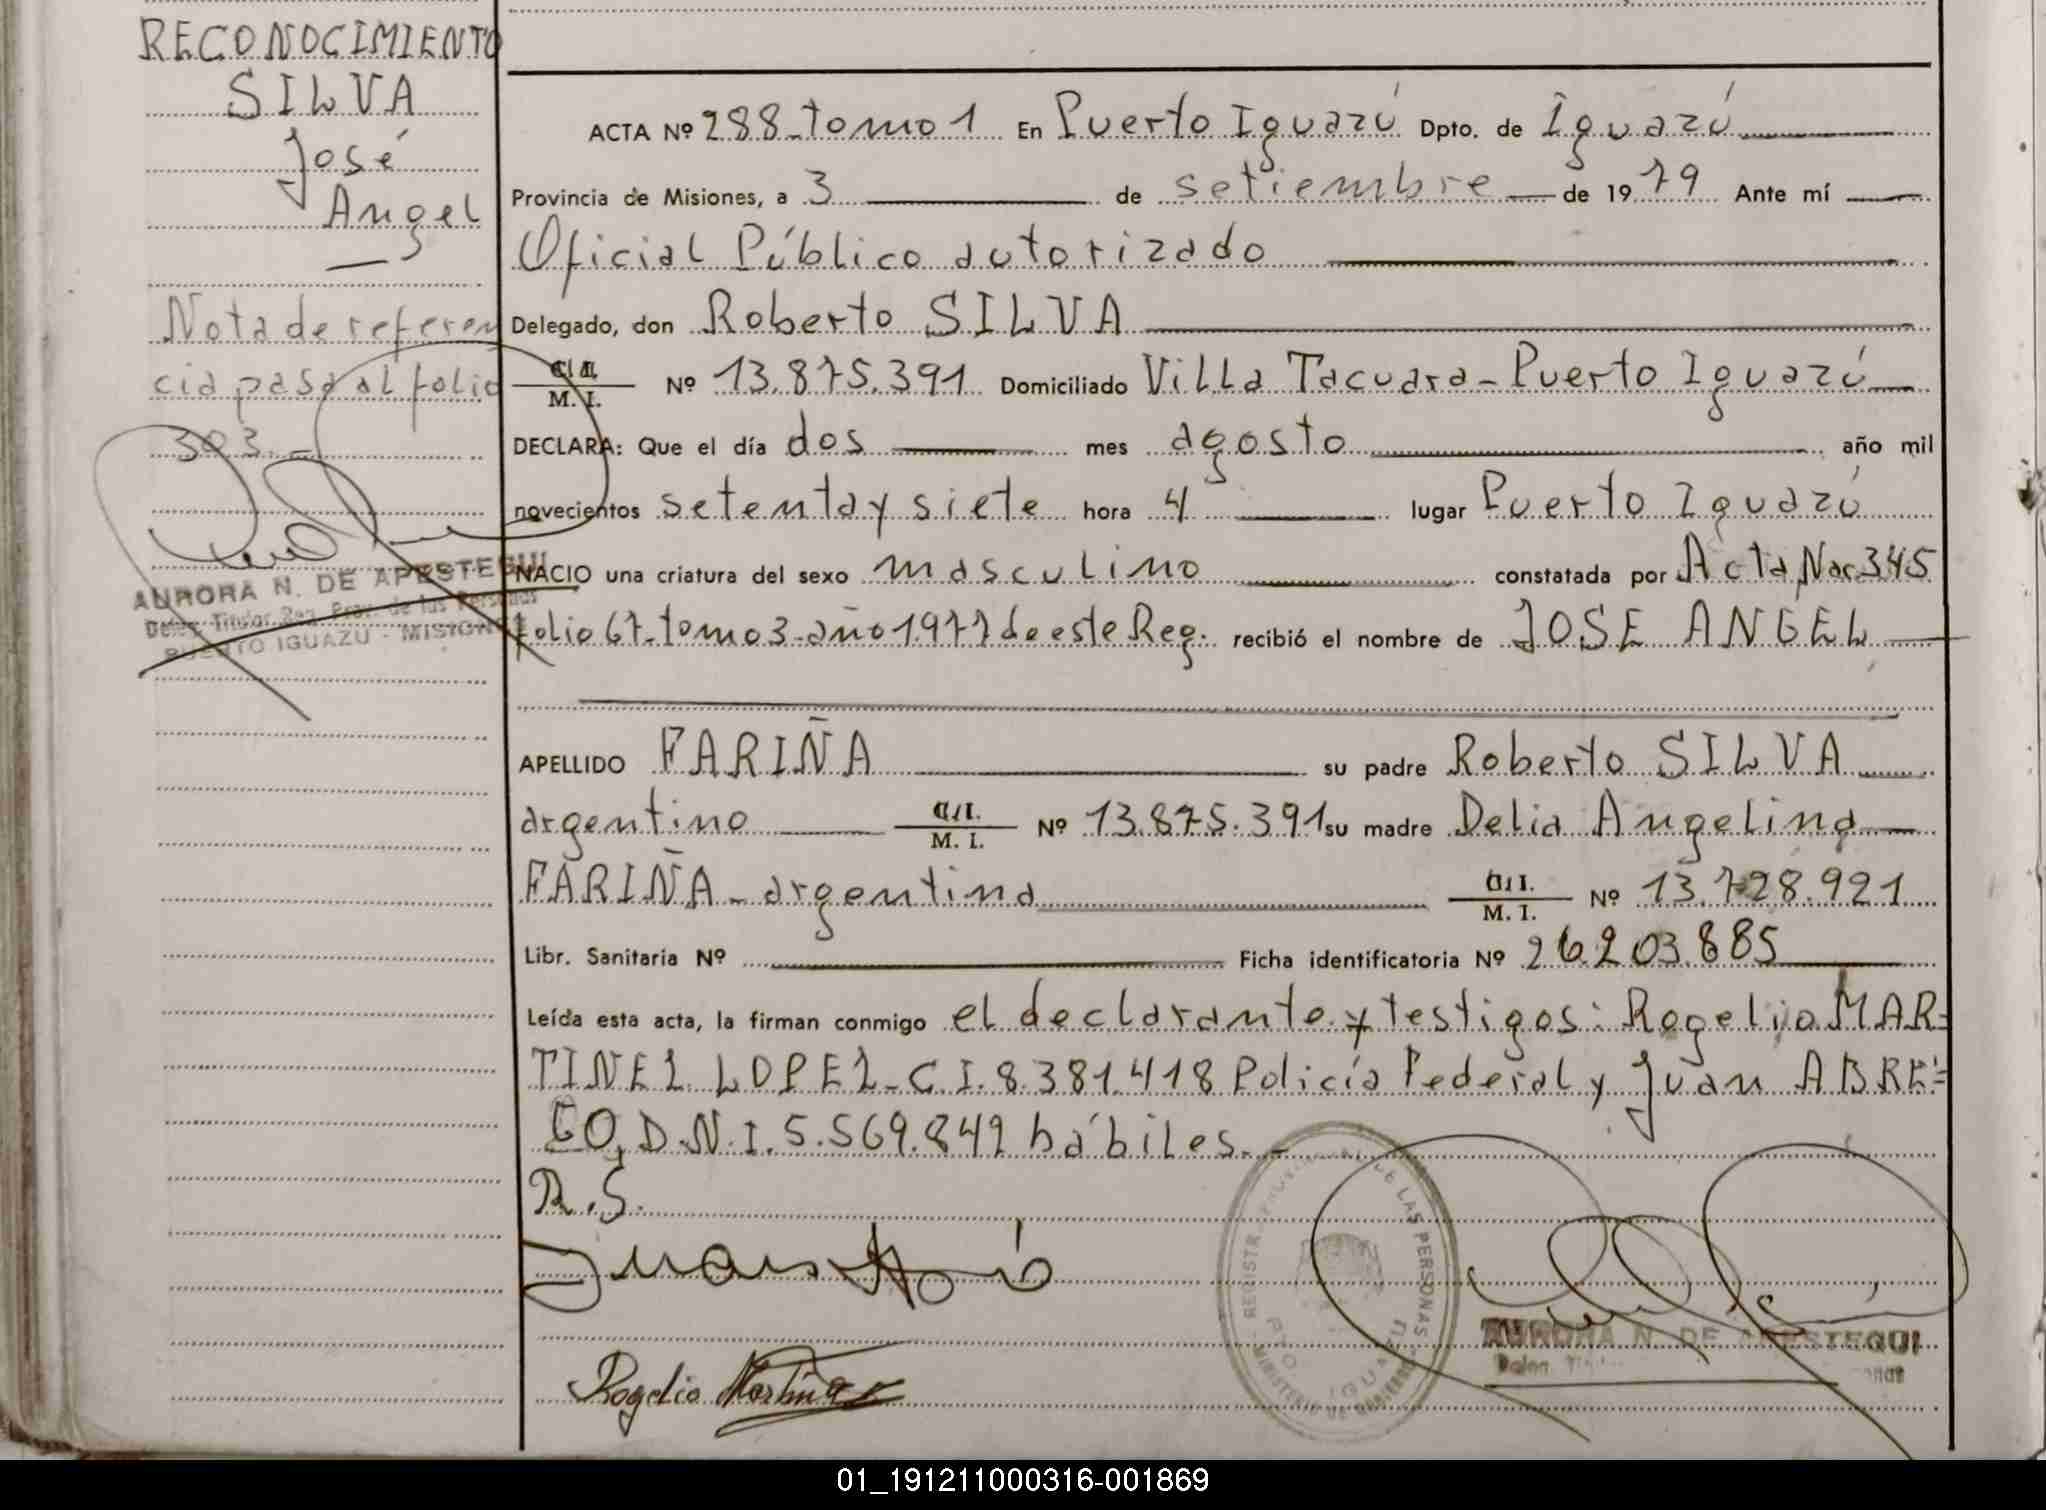 RECONOCIMIENTO
SILVA
José
Angel
Nota de referen
cia pasa al folio
303.-
AURORA N. DE APESTEGUI
Deleg. Titular Reg. Prov. de las Personas
PUERTO IGUAZU - MISIONES
ACTA Nº 288-tomo 1 En Puerto Iguazú Dpto. de Iguazú
Provincia de Misiones, a 3 de setiembre de 1979 Ante mí
Oficial Público autorizado
Delegado, don Roberto SILVA
M. I. Nº 13.875.391 Domiciliado Villa Tacuara - Puerto Iguazú
DECLARA: Que el día dos mes agosto año mil
novecientos setenta y siete hora 4 lugar Puerto Iguazú
NACIO una criatura del sexo masculino constatada por Acta Nº 345
folio 67-tomo 3-año 1.977 de este Reg. recibió el nombre de JOSE ANGEL
APELLIDO FARIÑA su padre Roberto SILVA
argentino M. I. Nº 13.875.391 su madre Delia Angelina
FARIÑA - argentina M. I. Nº 13.728.921
Libr. Sanitaria Nº Ficha identificatoria Nº 26.203.885
Leída esta acta, la firman conmigo el declarante y testigos: Rogelio MAR=
TINEZ LOPEZ - C.I. 8.381.418 Policía Federal y Juan ABRE=
GO, D.N.I. 5.569.842 hábiles.-
R.S.
Rogelio Martinez
REGISTRO PROVINCIAL DE LAS PERSONAS
PTO. IGUAZU
MINISTERIO DE GOBIERNO
AURORA N. DE APESTEGUI
01_191211000316-001869